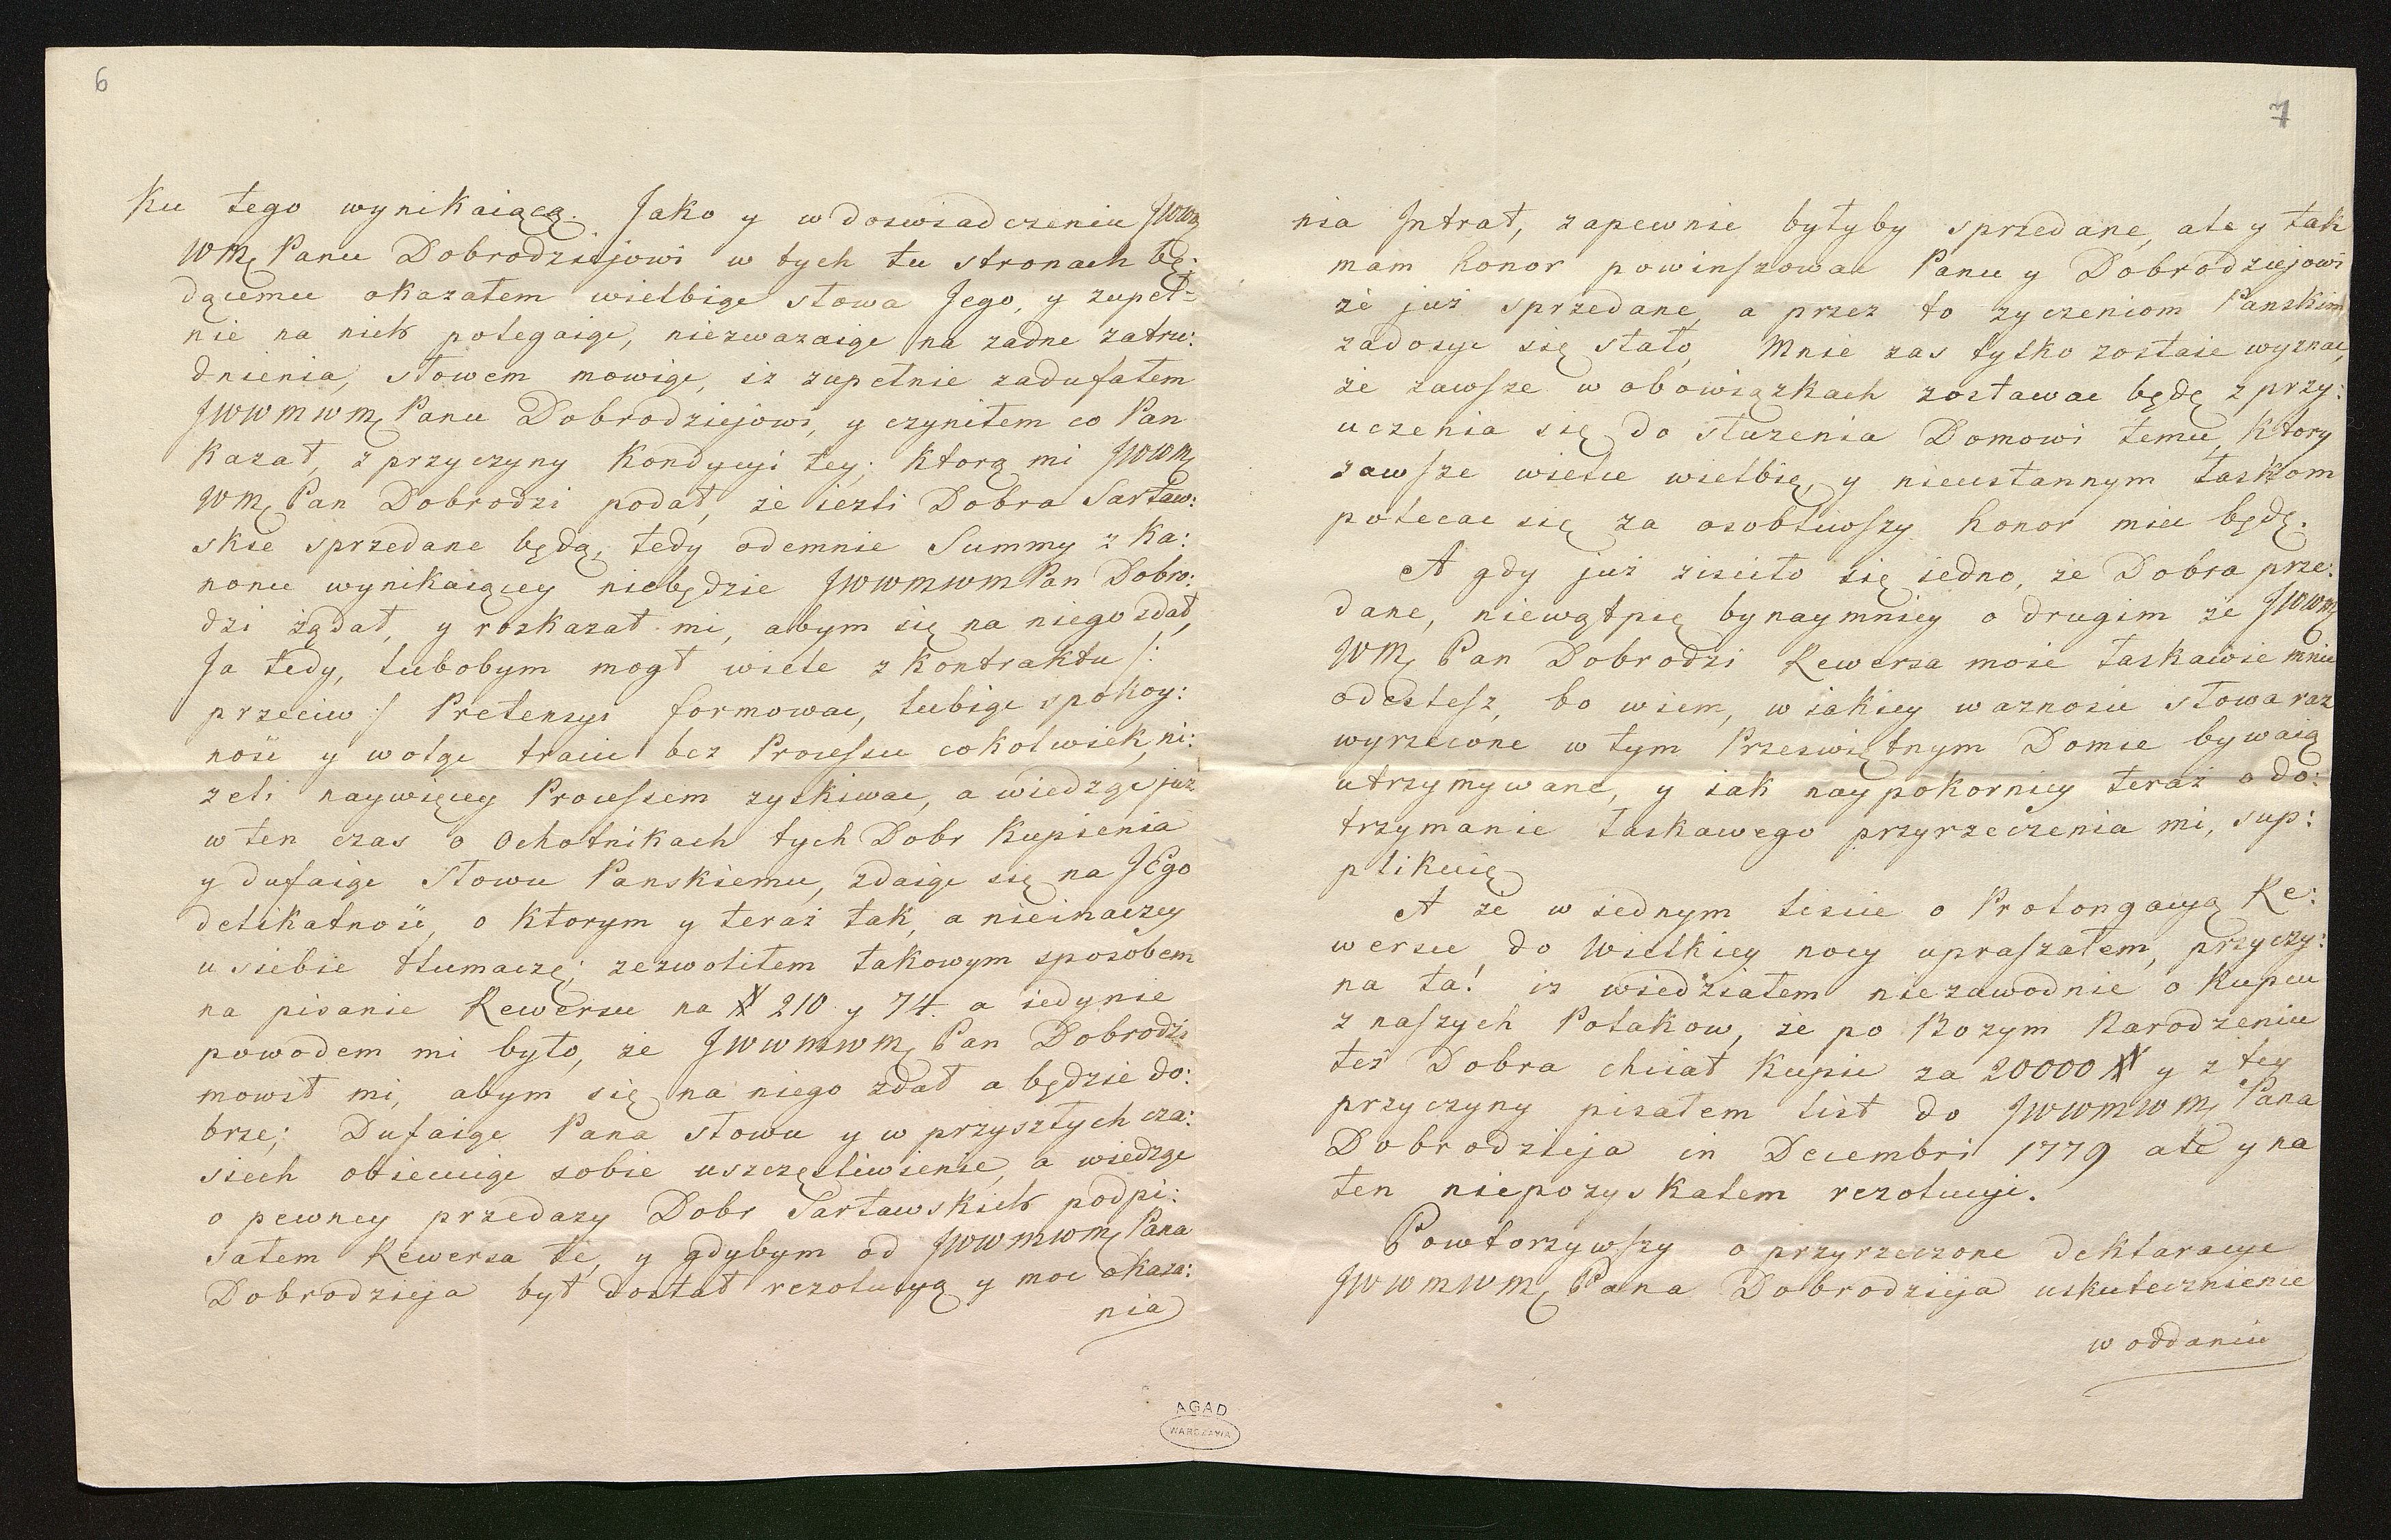 6
ku tego wynikaiącą. Jako y w doswiadczeniu JWWM
WM Panu Dobrodziejowi w tych tu stronach bę:
dącemu okazałem wielbiąc słowa Jego, y zupeł=
nie na nich polegaiąc, niezwazaiąc na zadne zatru:
dnienia, słowem mowiąc, iz zupełnie zadufałem
JWWMWM Panu Dobrodziejowi, y czyniłem co Pan
kazał, z przyczyny Kondycyi tey; ktorą mi JWWM
WM Pan Dobrodzi podał, że iezli Dobra Sartaw:
skie sprzedane będą, tedy odemnie Summy z Ka:
nonu wynikaiącey niebędzie JWWMWM Pan Dobro:
dzi żądał, y roskazał mi, abym się na niego zdał,
Ja tedy, lubobym mogł wiele z kontraktu /:
przeciw :/ Pretensyi formować, lubiąc spokoy:
ność y woląc tracic bez Processu cokolwiek, ni:
zeli naywięcey Processem zyskiwac, a wiedząc już
w ten czas o Ochotnikach tych Dobr Kupienia
y dufaiąc Słowu Panskiemu, zdaiąc się na JEgo
delikatność, o ktorym y teraz tak, a nieinaczey
u siebie tłumaczę; zezwoliłem takowym sposobem
na pisanie Rewersu na # 210 y 74. a iedynie
powodem mi było, że JWWMWM Pan Dobrodzi
mowił mi, abym się na niego zdał a będzie do:
brze; Dufaiąc Pana słowu y w przyszłych cza:
siech obiecuiąc sobie uszczęsliwienie, a wiedząc
o pewney przedazy Dobr Sartawskich podpi:
sałem Rewersa te, y gdybym od JWWMWM Pana
Dobrodzieja był dostał rezolucyą y moc okaza:
nia
7
nia Jntrat, zapewnie byłyby sprzedane, ale y tak
mam honor powinszowac Panu y Dobrodziejowi
że już sprzedane, a przez to zyczeniom Panskim
zadosyc się stało, Mnie zas tylko zostaie wyznac,
że zawsze w obowiązkach zostawac będę z przy:
uczenia się do służenia Domowi temu, ktory
zawsze wielce wielbię, y nieustannym łaskom
polecac się za osobliwszy honor miec będę.
A gdy już zisciło się iedno, że Dobra prze:
dane, niewątpię bynaymniey o drugim że JWWM
WM Pan Dobrodzi Rewersa moie łaskawie mnie
odeslesz, bo wiem, w iakiey waznosci słowa raz
wyrzeczone w tym Przeswiętnym Domie bywaią
utrzymywane, y iak naypokorniey teraz o do:
trzymanie łaskawego przyrzeczenia mi, sup:
plikuię
A że w iednym liscie o Prolongacyą Re:
wersu do Wielkiey nocy upraszałem, przyczy:
na ta! iz wiedziałem niezawodnie o kupcu
z naszych Polakow, że po Bozym Narodzeniu
też Dobra chciał kupic za 20000 # y z tey
przyczyny pisałem list do JWWMWM Pana
Dobrodzieja in Decembri 1779 ale y na
ten niepozyskałem rezolucyi.
Powtorzywszy o przyrzeczone deklaracye
JWWMWM Pana Dobrodzieja uskutecznienie
w oddaniu
AGAD
WARSZAWA